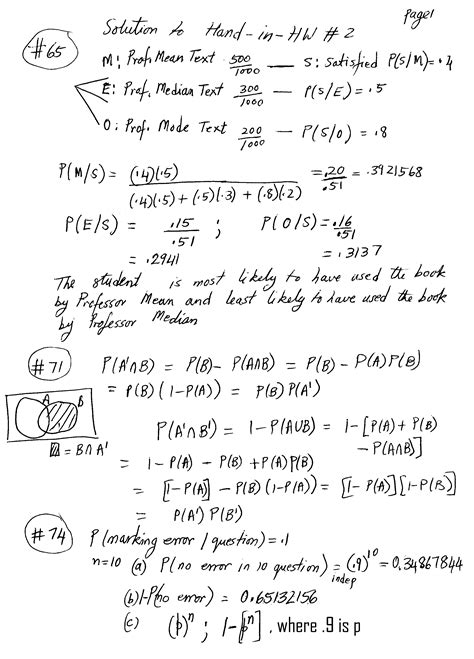 Page 1
Solution to Hand-in-HW # 2
#65
M: Prof. Mean Text 500/1000 — S: Satisfied P(S/M) = .4
E: Prof. Median Text 300/1000 — P(S/E) = .5
O: Prof. Mode Text 200/1000 — P(S/O) = .8
P(M/S) = (.4)(.5) / (.4)(.5) + (.5)(.3) + (.8)(.2) = .20/.51 = .3921568
P(E/S) = .15/.51 ; P(O/S) = .16/.51
= .2941 = .3137
The student is most likely to have used the book
by Professor Mean and least likely to have used the book
by Professor Median
#71 P(A'∩B) = P(B) - P(A∩B) = P(B) - P(A)P(B)
= P(B)(1-P(A)) = P(B)P(A')
A B
= B∩A'
P(A'∩B') = 1-P(A∪B) = 1-[P(A)+P(B)
-P(A∩B)]
= 1-P(A) - P(B) + P(A)P(B)
= [1-P(A)] - P(B)(1-P(A)) = [1-P(A)][1-P(B)]
= P(A')P(B')
#74 P(marking error / question) = .1
n=10 (a) P(no error in 10 question) = (.9)^10 = 0.34867844
indep
(b) 1-P(no error) = 0.65132156
(c) (p)^n ; 1-[p^n] , where .9 is p